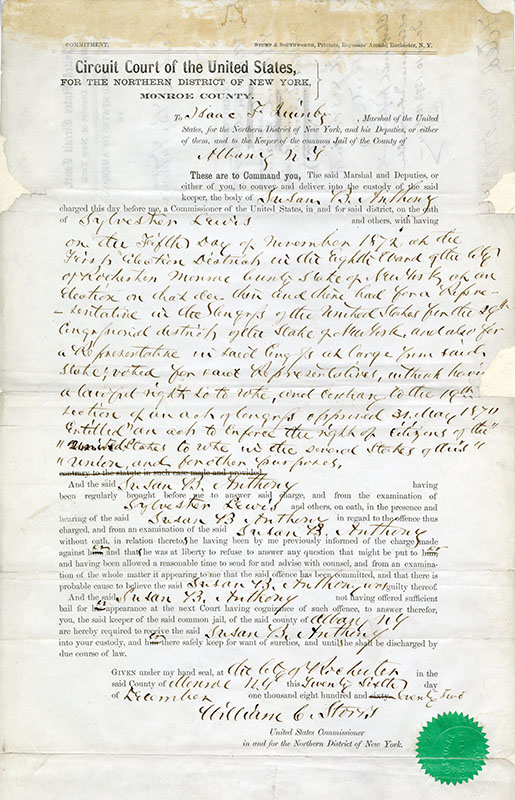 COMMITMENT. STUMP & SOUTHWORTH, Printers, Reynolds' Arcade, Rochester, N. Y.
Circuit Court of the United States,
FOR THE NORTHERN DISTRICT OF NEW YORK,
MONROE COUNTY.
To Isaac F. Quinby , Marshal of the United
States, for the Northern District of New York, and his Deputies, or either
of them, and to the Keeper of the common Jail of the County of
Albany N Y
These are to Command you, The said Marshal and Deputies, or
either of you, to convey and deliver into the custody of the said
keeper, the body of Susan B. Anthony
charged this day before me, a Commissioner of the United States, in and for said district, on the oath
of Sylvester Lewis and others, with having
on the Fifth Day of November 1872 at the
First Election District in the Eighth Ward of the City
of Rochester Monroe County State of New York at an
Election on that day then and there had for a Repre-
-sentative in the Congress of the United States for the 29th
Congressional district of the State of New York, and also for
a Representative in said Congress at large from said
State, voted for said Representatives, without having
a lawful right so to vote, and contrary to the 19th
section of an act of Congress approved 31 May 1870
Entitled "an act to Enforce the right of citizens of the"
"United States to vote in the several States of this"
"Union, and for other purposes.
contrary to the statute in such case made and provided.
And the said Susan B. Anthony having
been regularly brought before me to answer said charge, and from the examination of
Sylvester Lewis and others, on oath, in the presence and
hearing of the said Susan B Anthony in regard to the offence thus
charged, and from an examination of the said Susan B. Anthony
without oath, in relation thereto, she having been by me previously informed of the charge made
against her and that she was at liberty to refuse to answer any question that might be put to her
and having been allowed a reasonable time to send for and advise with counsel, and from an examina-
tion of the whole matter it appearing to me that the said offence has been committed, and that there is
probable cause to believe the said Susan B. Anthony was guilty thereof.
And the said Susan B. Anthony not having offered sufficient
bail for her appearance at the next Court having cognizance of such offence, to answer therefor,
you, the said keeper of the said common jail, of the said county of Albany NY
are hereby required to receive the said Susan B. Anthony
into your custody, and her there safely keep for want of sureties, and until she shall be discharged by
due course of law.
GIVEN under my hand seal, at the City of Rochester in the
said County of Monroe N.Y. this Twenty Sixth day
of December one thousand eight hundred and sixty- Seventy Two
William C. Storrs
United States Commissioner
in and for the Northern District of New York.